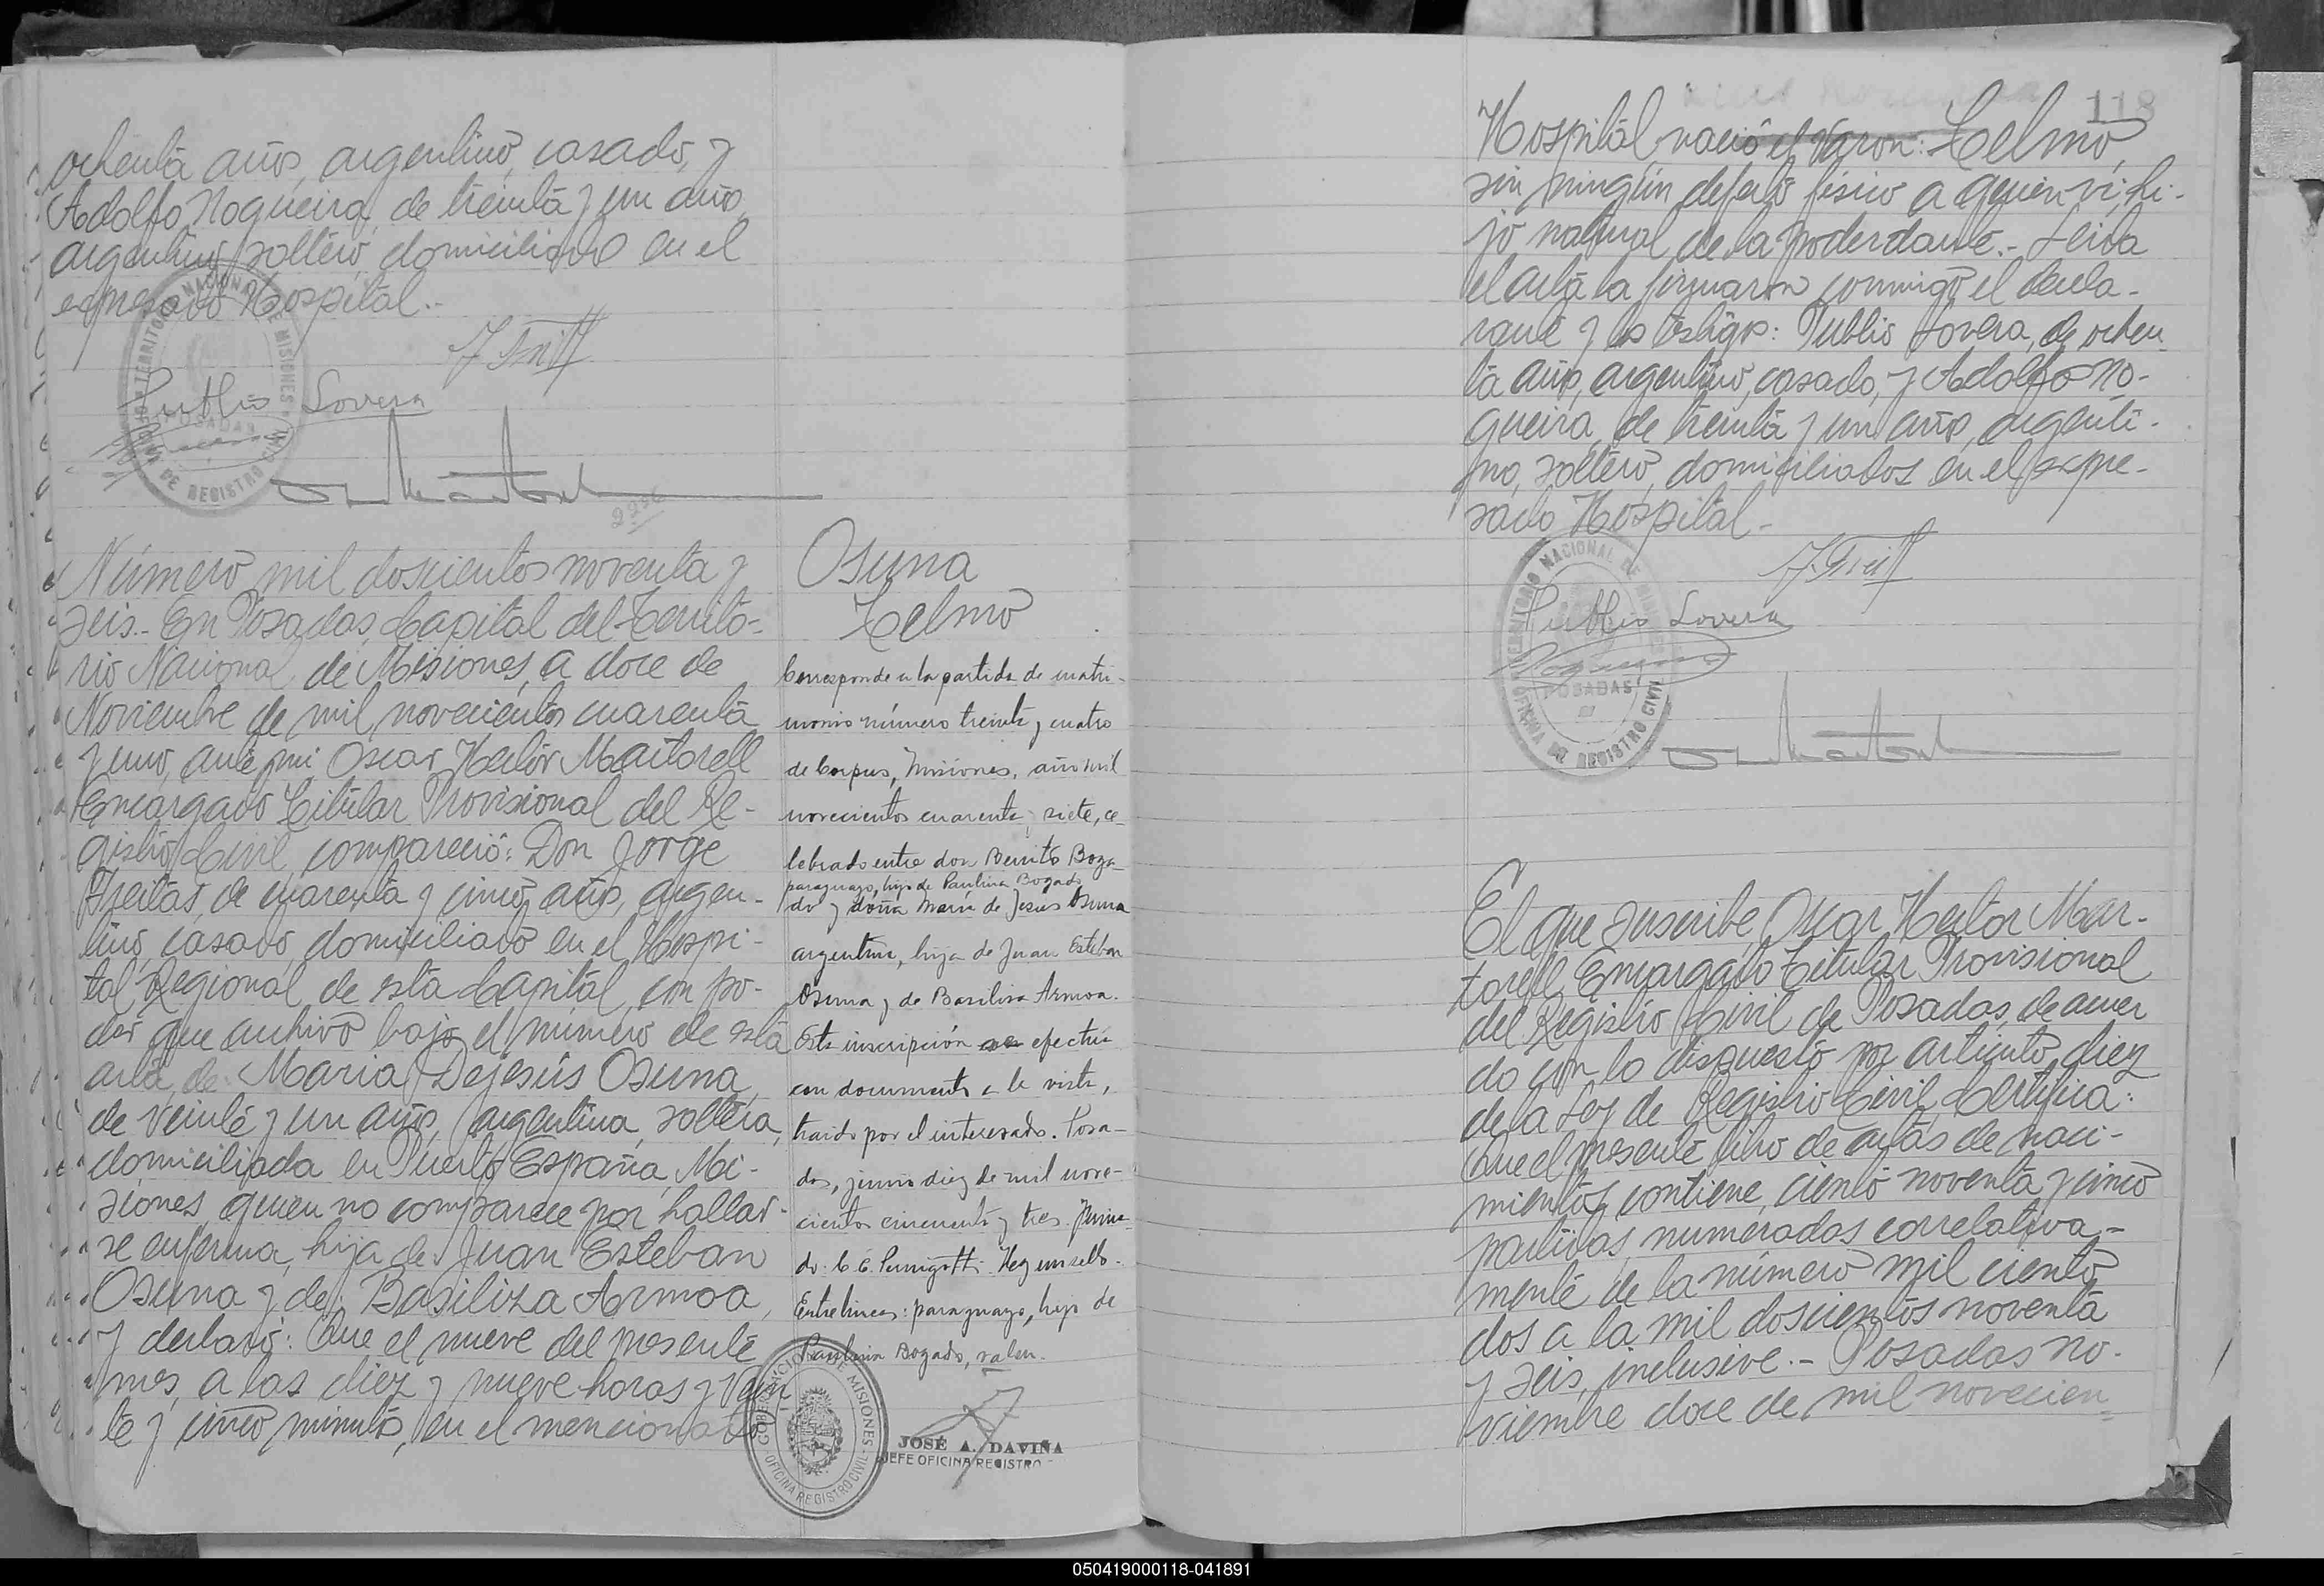 ochenta años, argentino, casado, y
Adolfo Nogueira, de treinta y un años,
argentino, soltero, domiciliados en el
expresado Hospital.-
TERRITORIO NACIONAL DE MISIONES
POSADAS
OFICINA DE REGISTRO CIVIL
Publio Lovera
2256
Número mil doscientos noventa y
seis.- En Posadas, Capital del Territo-
rio Nacional de Misiones, a doce de
Noviembre de mil novecientos cuarenta
y uno, ante mi Oscar Hector Martorell
Encargado Titular Provisional del Re-
gistro Civil, compareció: Don Jorge
Freitas, de cuarenta y cinco años, argen-
tino, casado, domiciliado en el Hospi-
tal Regional de esta Capital, con po-
der que archivo bajo el número de esta
acta, de Maria Dejesús Osuna,
de veinte y un años, argentina, soltera,
domiciliada en Puerto España, Mi-
siones, quien no comparece por hallar-
se enferma, hija de Juan Esteban
Osuna y de Basiliza Armoa,
y declaró: Que el nueve del presente
mes, a las diez y nueve horas y vein
te y cinco minutos, en el mencionado
Osuna
Telmo
Corresponde a la partida de matri-
monio número treinta y cuatro
de Corpus, Misiones, año mil
novecientos cuarenta y siete, ce-
lebrado entre don Benito Boga-
paraguayo, hijo de Paulina Bogado
do y doña María de Jesús Osuna
argentina, hija de Juan Esteban
Osuna y de Basilisa Armoa.
Esta inscripción se efectúa
con documento a la vista,
traido por el interesado. Posa-
das, junio diez de mil nove-
cientos cincuenta y tres. Firma-
do: C. E. Pernigotti. Hay un sello.
Entrelineas: paraguayo, hijo de
Paulina Bogado, valen.
GOBERNACION DE MISIONES
OFICINA REGISTRO CIVIL
JOSÉ A. DAVIÑA
JEFE OFICINA REGISTRO
118
Hospital, nació el varon: Telmo,
sin ningún defecto físico a quien ví, hi-
jo natural de la poderdante.- Leida
el acta la firmaron conmigo el decla-
rante y los testigos: Publio Lovera, de ochen
ta años, argentino, casado, y Adolfo No-
gueira, de treinta y un años, argenti-
no, soltero, domiciliados en el expre-
sado Hospital.-
TERRITORIO NACIONAL DE MISIONES
Publio Lovera
POSADAS
OFICINA DE REGISTRO CIVIL
El que suscribe, Oscar Hector Mar-
torell Encargado Titular Provisional
del Registro Civil de Posadas, de acuer
do con lo dispuesto por artículo diez
de la Ley de Registro Civil, Certifica:
Que el presente libro de actas de naci-
mientos, contiene, ciento noventa y cinco
partidas, numeradas correlativa-
mente de la número mil ciento
dos a la mil doscientos noventa
y seis, inclusive.- Posadas, no-
viembre doce de mil novecien=
050419000118-041891